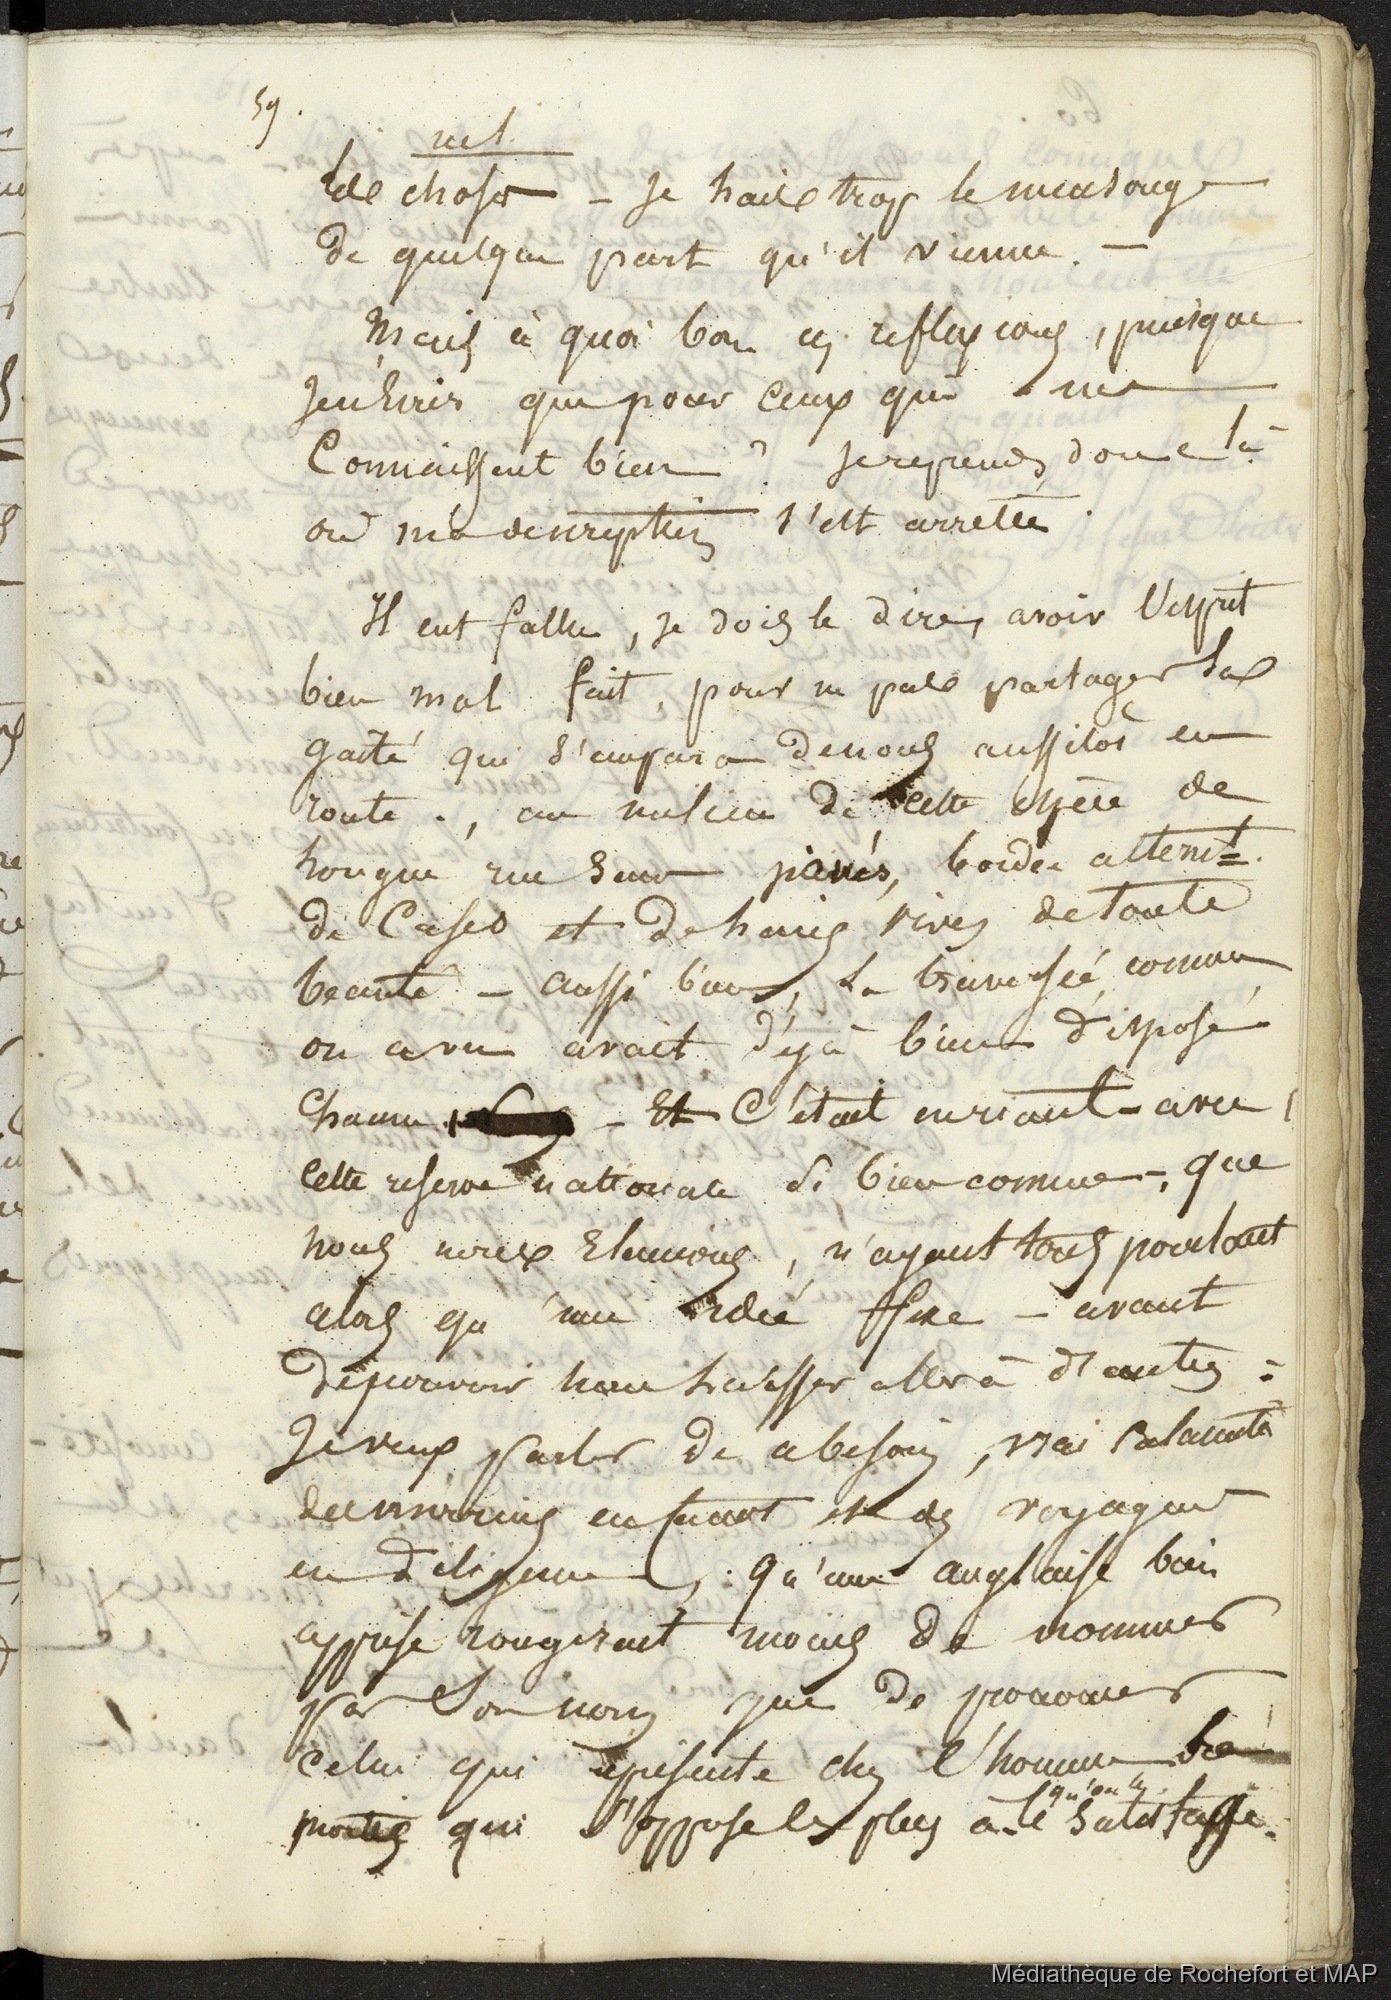 59.
des choses - je hais trop le mensonge
de quelque part qu'il vienne. -
Mais à quoi bon ces reflexions, puisque
je n'écris que pour ceux qui me
connaissent bien? je reprends donc là
où ma description s'est arrêtée.
Il eut fallu, je dois le dire, avoir l'esprit
bien mal fait, pour ne pas partager la
gaité qui s'empara de nous aussitôt en
route., au milieu de cette espèce de
longue rue sans pavés, bordée attenst.
de cases et de haies vives de toute
beauté - aussi bien, la traversée, comme
on a vu avait déjà bien disposé
chacun - Et c'était en riant - avec
cette reserve nationale si bien connue -, que
nous nous , n'ayant tous pourtant
alors qu'une idée fixe - avant
de pouvoir nous laisser aller à d'autres :
je veux parler de ce besoin, vrai
des marins en et des voyageurs
en diligence, qu'une anglaise bien
apprise rougirait moins de nommer
par son nom que de prononcer
celui qui représente chez l'homme la
partie qui s'oppose le plus à ce qu'on le satisfasse.
Médiathèque de Rochefort et MAP